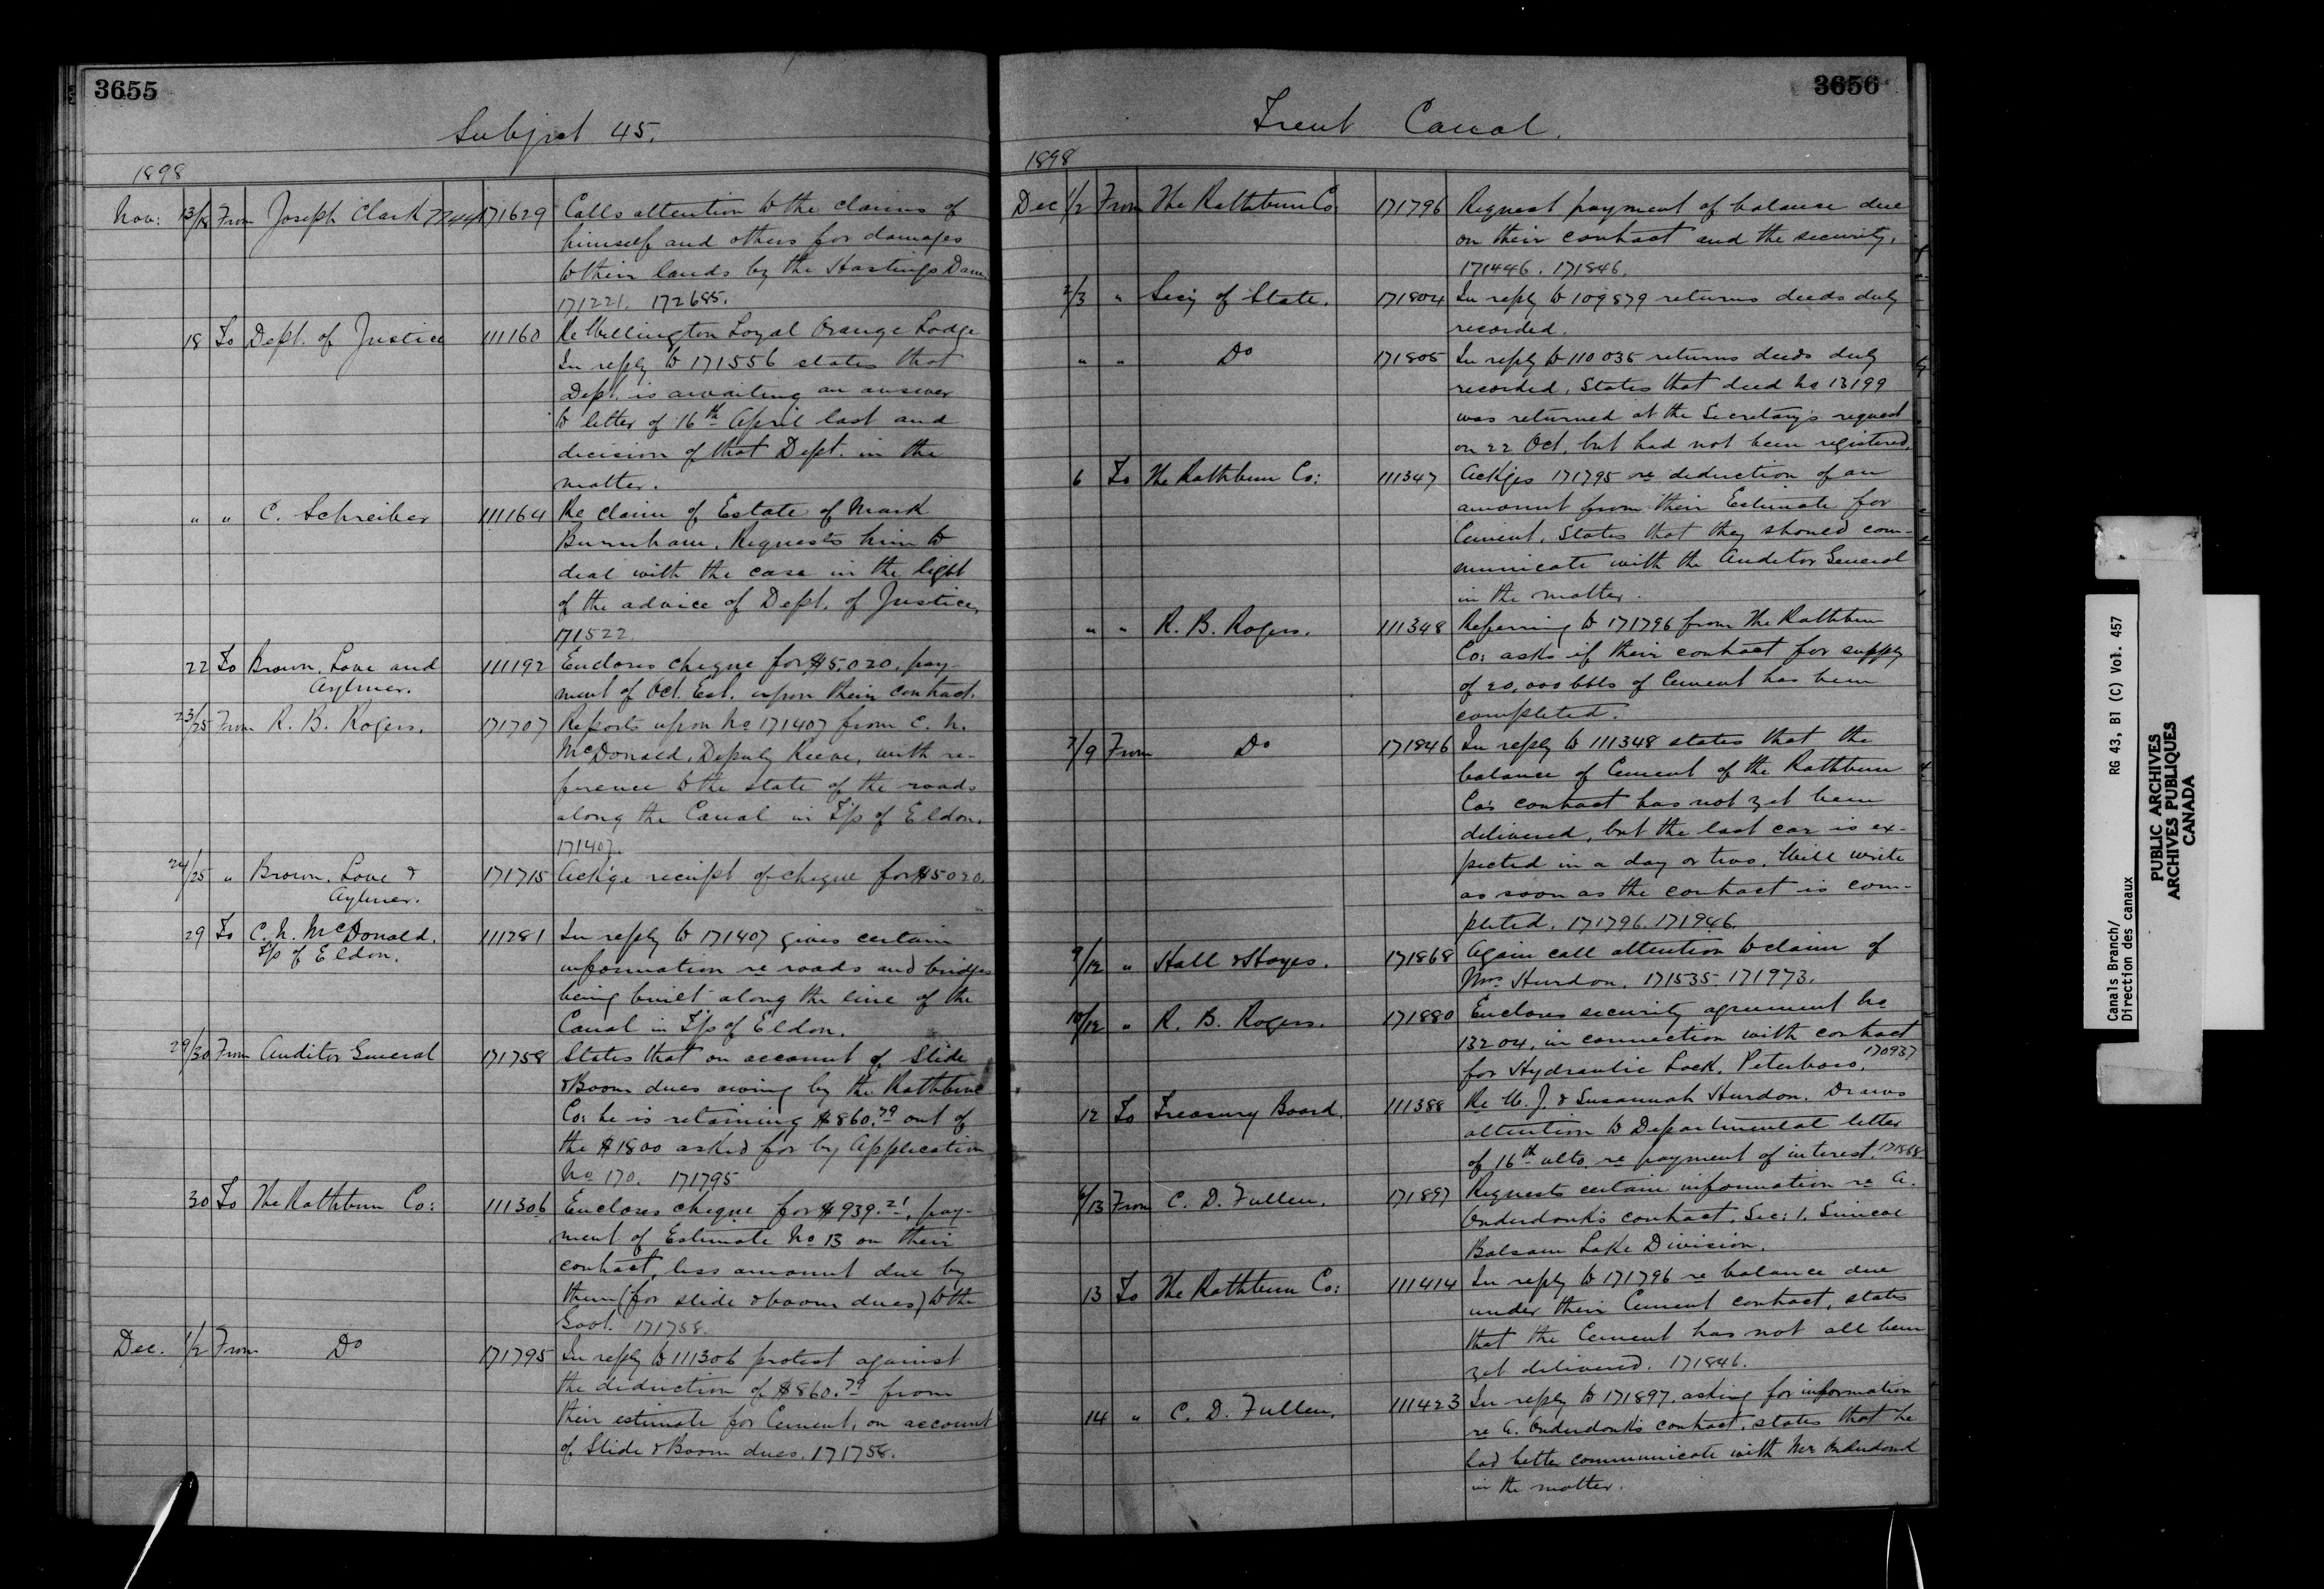 3655
Subject 45.
1898
Nov: 13/18 From Joseph Clark 7744 171629 Calls attention to the claims of
himself and others for damages
to their lands by the Hastings Dam
171221. 172685.
18 To Dept. of Justice 111160 Re Wellington Loyal Orange Lodge
In reply to 171556 states that
Dept. is awaiting an answer
to letter of 16th April last and
decision of that Dept. in the
matter.
" " C. Schreiber 111164 Re claim of Estate of Mark
Burnham. Requests him to
deal with the case in the light
of the advice of Dept. of Justice,
171522.
22 To Brown, Love and 111192 Encloses cheque for $5,020, pay-
Aylmer. ment of Oct. Est. upon their contract.
23/25 From R. B. Rogers. 171707 Reports upon No 171407 from C. N.
McDonald, Deputy Reeve, with re-
ference to the state of the roads
along the Canal in T/p of Eldon.
171407.
24/25 " Brown, Love & 171715 Ack'ge receipt of cheque for $5020.
Aylmer.
29 To C. N. McDonald. 111281 In reply to 171407 gives certain
T/p of Eldon. information re roads and bridges
being built along the line of the
Canal in T/p of Eldon.
29/30 From Auditor General 171758 States that on account of Slide
& Boom dues owing by the Rathbun
Co: he is retaining $860.79 out of
the $1800 asked for by Application
No 170. 171795
30 To The Rathbun Co: 111306 Encloses cheque for $939.21, pay-
ment of Estimate No 13 on their
contract, less amount due by
them (for slide & boom dues) to the
Govt. 171758.
Dec. 1/2 From Do 171795 In reply to 111306 protest against
the deduction of $860.79 from
their estimate for Cement, on account
of Slide & Boom dues. 171758.
3656
Trent Canal.
1898
Dec 1/2 From The Rathbun Co. 171796 Request payment of balance due
on their contract and the security.
171446. 171846.
2/3 " Secy of State. 171804 In reply to 109879 returns deeds duly
recorded.
" " Do 171805 In reply to 110035 returns deeds duly
recorded. States that deed No 13199
was returned at the Secretary's request
on 22 Oct. but had not been registered.
6 To The Rathbun Co: 111347 Ack'ges 171795 re deduction of an
amount from their Estimate for
Cement. States that they should com-
municate with the Auditor General
in the matter.
" " R. B. Rogers. 111348 Referring to 171796 from The Rathbun
Co: asks if their contract for supply
of 20,000 bbls of Cement has been
completed.
7/9 From Do 171846 In reply to 111348 states that the
balance of Cement of the Rathbun
Co's contract has not yet been
delivered, but the last car is ex-
pected in a day or two. Will write
as soon as the contract is com-
pleted. 171796. 171946.
9/12 " Hall & Hayes. 171868 Again call attention to claim of
Mrs Hurdon. 171535. 171973.
10/12 " R. B. Rogers. 171880 Encloses security agreement No
13204, in connection with contract
for Hydraulic Lock, Peterboro. 170937
12 To Treasury Board. 111388 Re W. J. & Susannah Hurdon. Draws
attention to Departmental letter
of 16th ulto. re payment of interest. 171868
6/13 From C. D. Fullen. 171897 Requests certain information re A.
Onderdonk's contract, Sec: 1, Simcoe
Balsam Lake Division.
13 To The Rathbun Co: 111414 In reply to 171796 re balance due
under their Cement contract, states
that the Cement has not all been
yet delivered. 171846.
14 " C. D. Fullen. 111423 In reply to 171897, asking for information
re A. Onderdonk's contract, states that he
had better communicate with Mr Onderdonk
in the matter.
Canals Branch/ RG 43, B1 (C) Vol. 457
Direction des canaux
PUBLIC ARCHIVES
ARCHIVES PUBLIQUES
CANADA